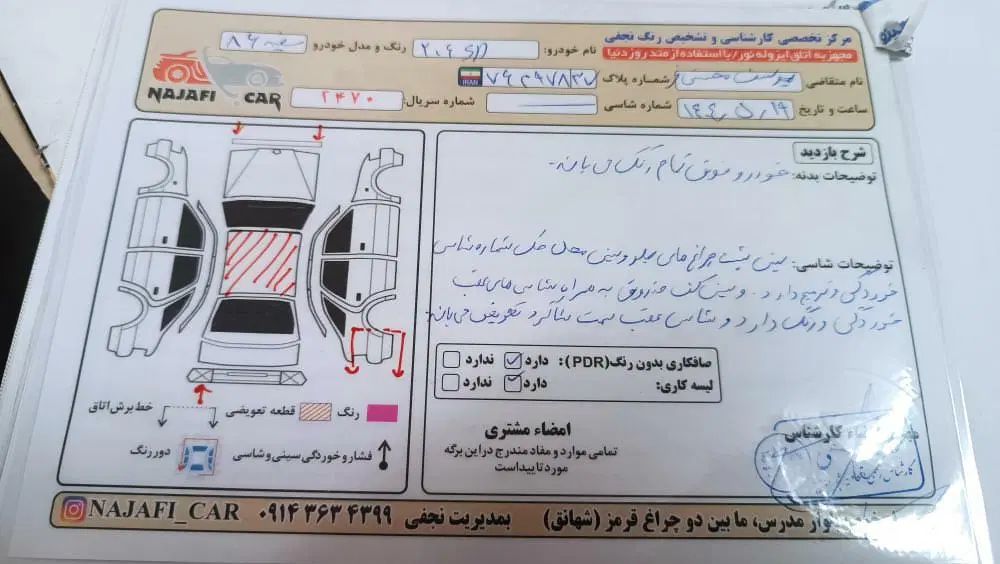 مرکز تخصصی کارشناسی و تشخیص رنگ نجفی
مجهز به اتاق ایزوله نور/با استفاده از متد روز دنیا
نام خودرو: 206 SD رنگ و مدل خودرو سفید 86
نام متقاضی: یوسف محسنی شماره پلاک
IRAN
ساعت و تاریخ 19 / 5 / 1404 شماره شاسی شماره سریال: ۲۴۷۰
NAJAFI CAR
شرح بازدید
توضیحات بدنه: خودرو فوق تمام رنگ می باند.
توضیحات شاسی: سینی پشت چراغ های جلو و سینی محل حک شماره شاسی
خوردگی و ترمیم دارد. و سینی کف صندوق به همراه شاسی های عقب
خوردگی و رنگ دارد و شاسی عقب سمت شاگرد تعویض می باند.
صافکاری بدون رنگ (PDR): دارد ندارد
لیسه کاری: دارد ندارد
رنگ
قطعه تعویضی
خط برش اتاق
فشار و خوردگی سینی و شاسی
دور رنگ
امضاء مشتری
تمامی موارد و مفاد مندرج در این برگه
مورد تایید است
کارشناس
وار مدرس، ما بین دو چراغ قرمز (شهانق) بمدیریت نجفی ۰۹۱۴ ۳۶۳ ۴۳۹۹ NAJAFI_CAR